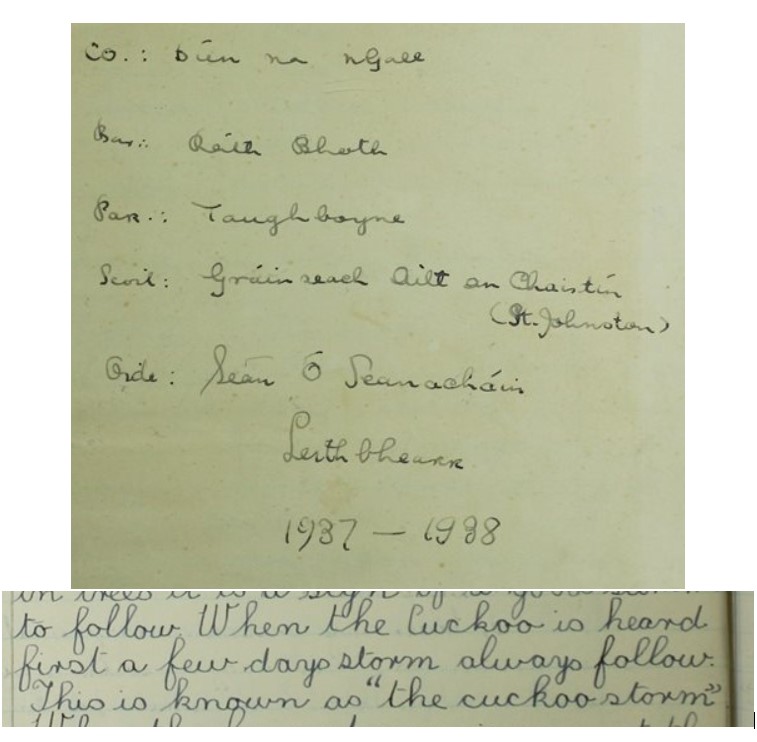 Co.: Dún na nGall
Bar.: Ráth Bhoth
Par.: Taughboyne
Scoil: Gráinseach Ailt an Chaistín
(St. Johnston)
Oide: Seán Ó Seanacháin
Leithbhearr
1937 — 1938
in trees it is a sign of a good
to follow. When the Cuckoo is heard
first a few days storm always follow.
This is known as "the cuckoo storm"